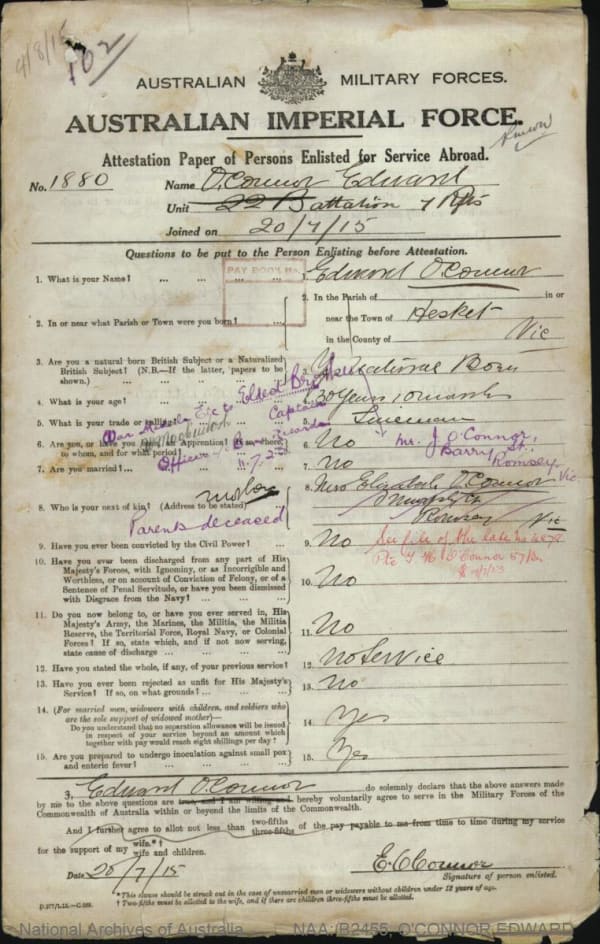 4/8/15
102
AUSTRALIAN MILITARY FORCES.
AUSTRALIAN IMPERIAL FORCE.
Attestation Paper of Persons Enlisted for Service Abroad.
No. 1880 Name O'Connor Edward
Unit 22 Battalion 4 Rfts
Joined on 20/7/15
Questions to be put to the Person Enlisting before Attestation.
PAY BOOK No.
1. What is your Name? ... ... ... ... 1. Edward O'Connor
2. In or near what Parish or Town were you born? ... 2. In the Parish of in or
near the Town of Hesket
in the County of Vic
3. Are you a natural born British Subject or a Naturalized
British Subject? (N.B.—If the latter, papers to be
shown.) ... ... ... ... 3. Natural Born
4. What is your age? ... ... 30 Years 10 months
5. What is your trade or calling? 5. Lineman
6. Are you, or have you been an Apprentice? If so, where,
to whom, and for what period? 6. No
7. Are you married? ... 7. No
Eldest Brother
Captain
Records
Officer
11.7.23
Mr. J. O'Connor,
Barry St.
Romsey Vic
8. Who is your next of kin? (Address to be stated) 8. Mrs Elizabeth O'Connor
mother
Romsey Vic
Parents deceased
9. Have you ever been convicted by the Civil Power? ... 9. No
See file of the late No
Pte O'Connor 57 Bn
10. Have you ever been discharged from any part of His
Majesty's Forces, with Ignominy, or as Incorrigible and
Worthless, or on account of Conviction of Felony, or of a
Sentence of Penal Servitude, or have you been dismissed
with Disgrace from the Navy? ... ... 10. No
11. Do you now belong to, or have you ever served in, His
Majesty's Army, the Marines, the Militia, the Militia
Reserve, the Territorial Force, Royal Navy, or Colonial
Forces? If so, state which, and if not now serving,
state cause of discharge ... ... ... 11. No
12. Have you stated the whole, if any, of your previous service? 12. No Service
13. Have you ever been rejected as unfit for His Majesty's
Service? If so, on what grounds? ... ... 13. No
14. (For married men, widowers with children, and soldiers who
are the sole support of widowed mother)—
Do you understand that no separation allowance will be issued
in respect of your service beyond an amount which
together with pay would reach eight shillings per day? 14. Yes
15. Are you prepared to undergo inoculation against small pox
and enteric fever? ... ... ... 15. Yes
I, Edward O'Connor do solemnly declare that the above answers made
by me to the above questions are true, and I am willing and hereby voluntarily agree to serve in the Military Forces of the
Commonwealth of Australia within or beyond the limits of the Commonwealth.
And I further agree to allot not less than two-fifths three-fifths of the pay payable to me from time to time during my service
for the support of my wife.*† wife and children.
Date 20/7/15 E. O'Connor
Signature of person enlisted.
*This clause should be struck out in the case of unmarried men or widowers without children under 18 years of age.
† Two-fifths must be allotted to the wife, and if there are children three-fifths must be allotted.
National Archives of Australia NAA: B2455, O'CONNOR EDWARD